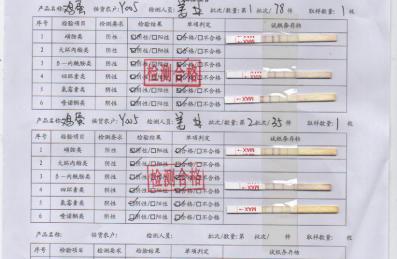 产品名称:鸡蛋 供货客户:Y005 检测人员: 批次/数量:第1批次/78件 取样数量:1枚
序号 检验项目 检测要求 检验结果 单项判定 试纸条存档
1 磺胺类 阴性 ☑阴性/□阳性 ☑合格/□不合格
2 大环内酯类 阴性 ☑阴性/□阳性 ☑合格/□不合格
3 β-内酰胺类 阴性 ☑阴性/□阳性 ☑合格/□不合格
4 四环素类 阴性 ☑阴性/□阳性 ☑合格/□不合格
5 氟霉素类 阴性 ☑阴性/□阳性 ☑合格/□不合格
6 喹诺酮类 阴性 ☑阴性/□阳性 ☑合格/□不合格
检测合格
MAX
MAX
产品名称:鸡蛋 供货客户:Y005 检测人员: 批次/数量:第2批次/35件 取样数量:1枚
序号 检验项目 检测要求 检验结果 单项判定 试纸条存档
1 磺胺类 阴性 ☑阴性/□阳性 ☑合格/□不合格
2 大环内酯类 阴性 ☑阴性/□阳性 ☑合格/□不合格
3 β-内酰胺类 阴性 ☑阴性/□阳性 ☑合格/□不合格
4 四环素类 阴性 ☑阴性/□阳性 ☑合格/□不合格
5 氟霉素类 阴性 ☑阴性/□阳性 ☑合格/□不合格
6 喹诺酮类 阴性 ☑阴性/□阳性 ☑合格/□不合格
检测合格
MAX
MAX
MAX
产品名称: 供货客户: 检测人员: 批次/数量:第 批次/ 件 取样数量: 枚
序号 检验项目 检测要求 检验结果 单项判定 试纸条存档